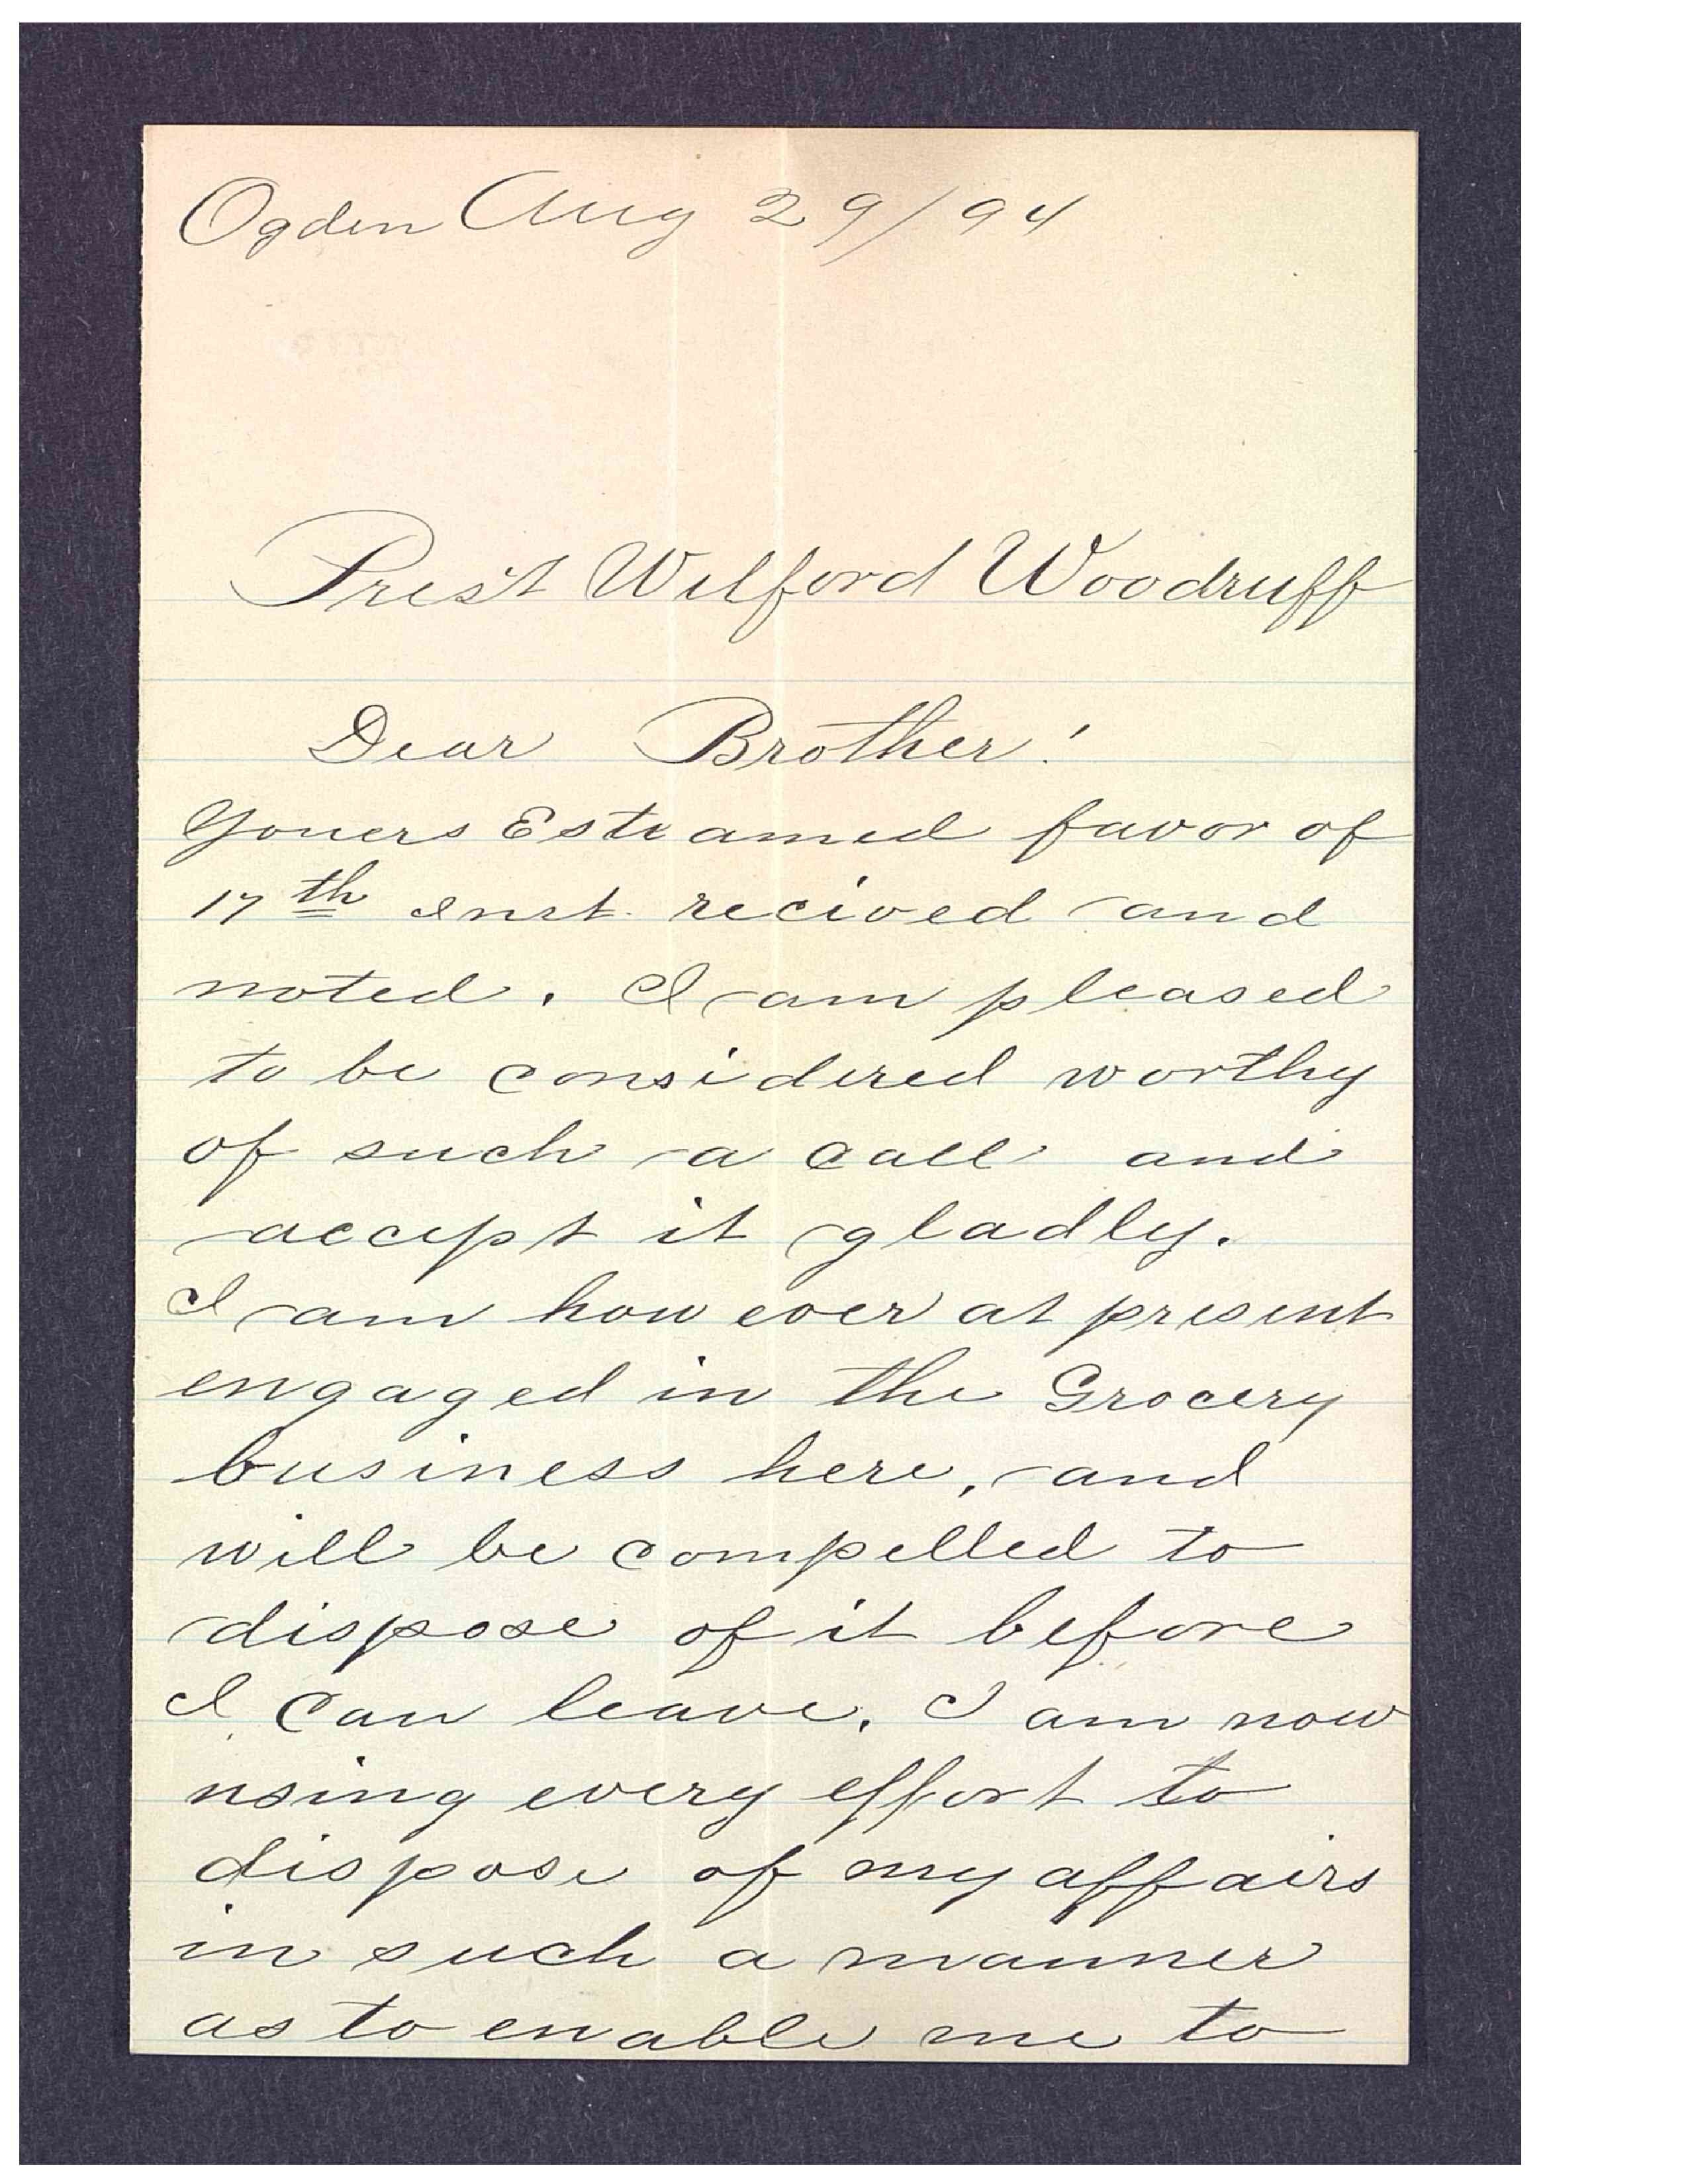 Ogden Aug 29/94
Prest Wilford Woodruff
Dear Brother!
Youers Esteamed favor of
17th Inst. recived and
noted. I am pleased
to be considered worthy
of such a call and
accept it gladly.
I am how ever at present
engaged in the Grocery
business here, and
will be compelled to
dispose of it before
I can leave. I am now
using every effort to
dispose of my affairs
in such a manner
as to enable me to